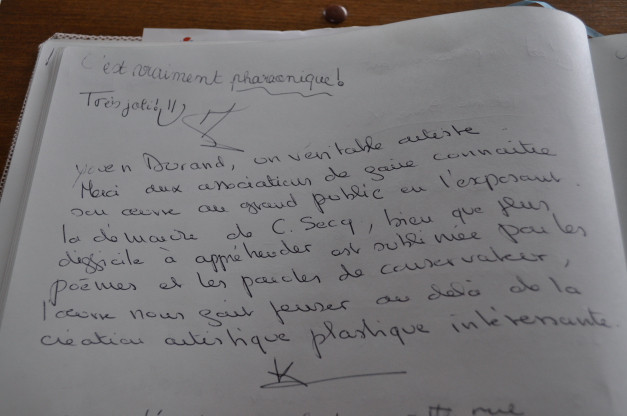 C'est vraiment pharaonique!
Très joli!!!
Durand, un véritable artiste
Merci aux associations de faire connaître
son œuvre au grand public en l'exposant.
la démarche de C. Secq, bien que plus
difficile à appréhender est sublimée par les
poèmes et les paroles de conservateur,
l'œuvre nous fait penser au delà de la
création artistique plastique intéressante.